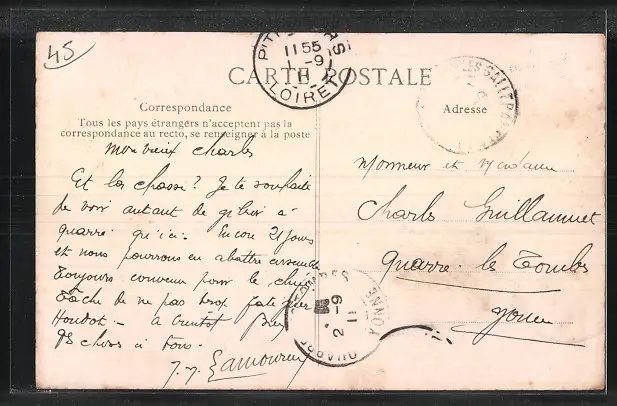 45
PITHIVIERS
11 55
1 -9
11
LOIRET
CARTE POSTALE
Correspondance
Adresse
Tous les pays étrangers n'acceptent pas la
correspondance au recto, se renseigner à la poste
Mon vieux Charles
Et la chasse ? Je te souhaite
de voir autant de gibier à
Quarré qu'ici. Encore 21 jours
et nous pourrons en abattre ensemble
Toujours convenu pour le
Tâche de ne pas trop fatiguer
Houdot - A bientôt Bien
des choses à tous.
J. Lamoureux
Monsieur et Madame
Charles Guillaumet
Quarré les Tombes
Yonne
QUARRÉ-LES-TOMBES
2 -9
11
YONNE